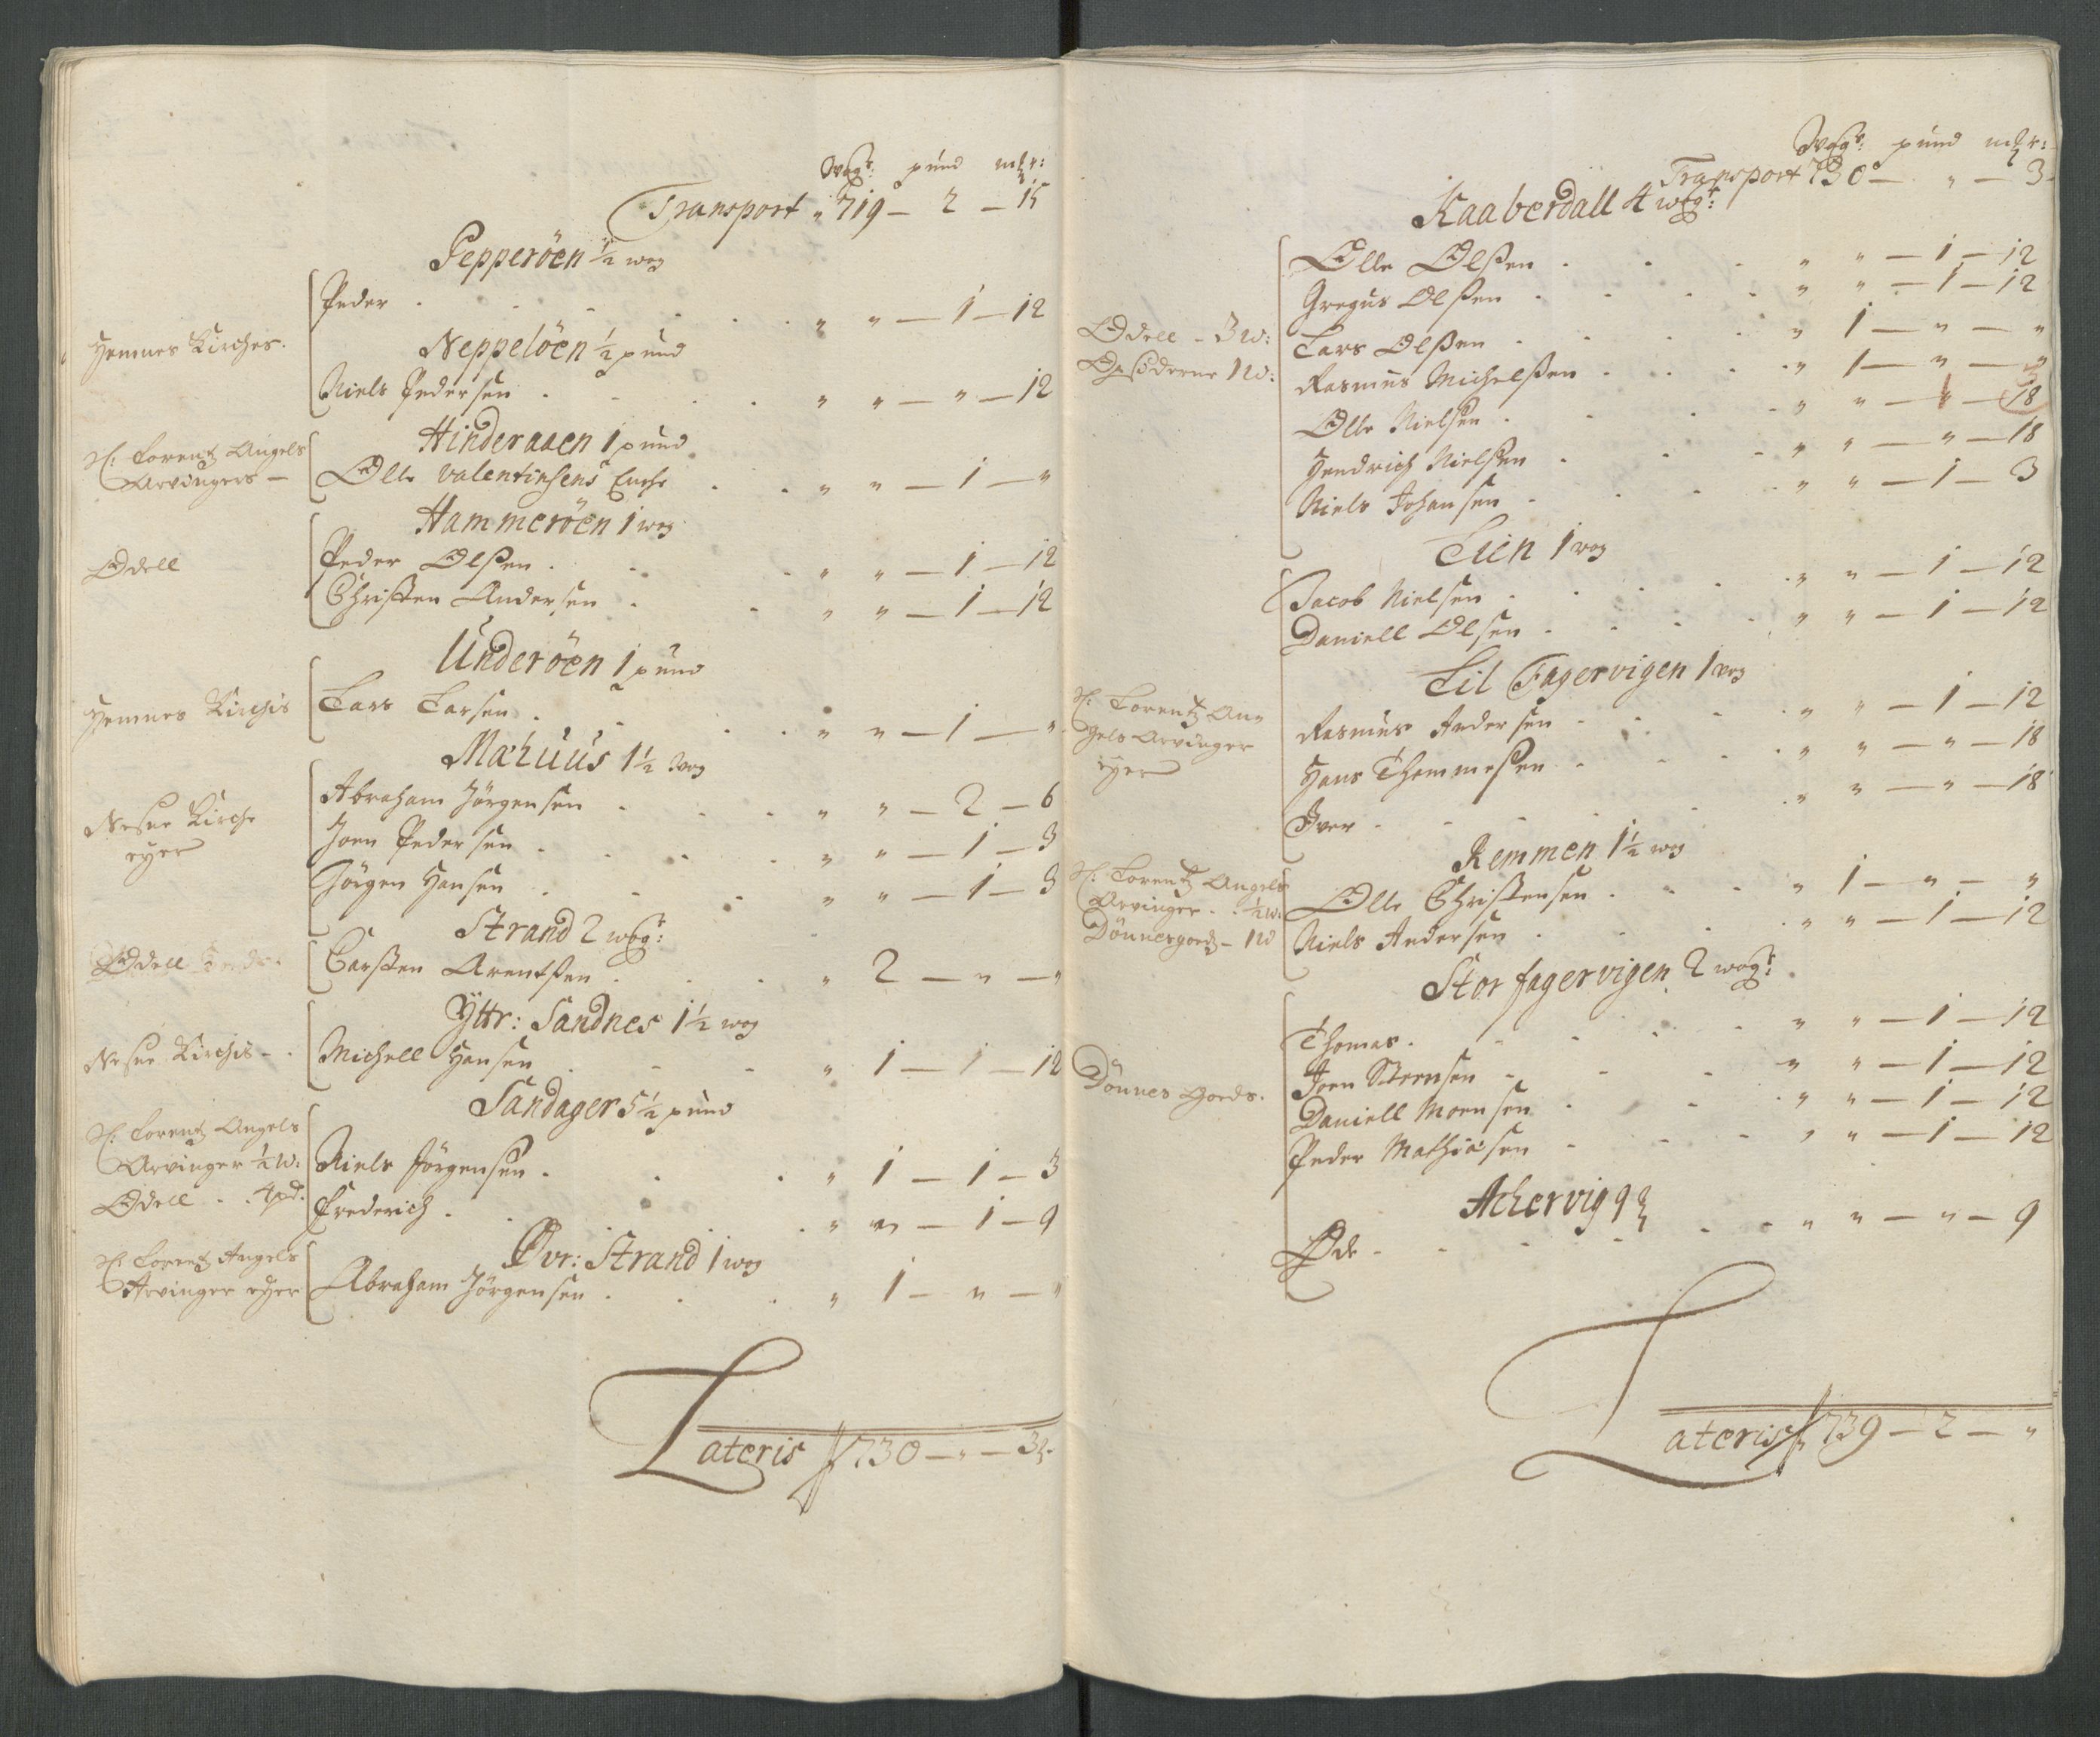 Wogr: pund mkr:
Transport „ 719 — 2 — 15
Pepperöen ½ wog
Hemnes Kirches.
Peder . . . „ „ — 1 — 12
Neppelöen ½ pund
Niels Pedersen . . . „ „ — „ — 12
H: Lorentz Angels
Arvingers —
Hinderaaen 1 pund
Olle Valentinsens Enche . . „ „ — 1 — „
Hammeröen 1 wog
Odell
Peder Olßen . . . „ „ — 1 — 12
Christen Andersen . . „ „ — 1 — 12
Underöen 1 pund
Hemnes Kirchis
Lars Larsen . . . „ „ — 1 — „
Mahuus 1½ wog
Nesne Kirche
eyer
Abraham Jörgensen . . . „ „ — 2 — 6
Joen Pedersen . . . „ „ — 1 — 3
Jörgen Hansen . . . „ „ — 1 — 3
Strand 2 wogr:
Odell
Carsten Arentsen . . . „ 2 — „ — „
Yttr: Sandnes 1½ wog
Nesne Kirchis — .
Michell Hansen . . . „ 1 — 1 — 12
Sandager 5½ pund
H: Lorentz Angels
Arvinger ½ W:
Odell . . 4 pd.
Niels Jörgensen . . . „ 1 — 1 — 3
Frederich . . . „ „ — 1 — 9
Øvr: Strand 1 wog
H: Lorentz Angels
Arvinger eyer
Abraham Jörgensen . . . „ 1 — „ — „
Lateris 730 — „ — 3
Wogr: pund mkr:
Transport 730 — „ — 3
Kaaberdall 4 wogr:
Odell — 3 W:
Opsiderne 1 W:
Olle Olßen . . . „ „ — 1 — 12
Gregus Olßen . . . „ „ — 1 — 12
Lars Olßen . . . „ 1 — „ — „
Rasmus Michelßen . . . „ 1 — „ — „
Olle Nielsen . . . „ „ — „ — 18
Hendrich Nielsen . . . „ „ — „ — 18
Niels Johansen . . . „ „ — 1 — 3
Lien 1 wog
Jacob Nielsen . . . „ „ — 1 — 12
Daniell Olsen . . . „ „ — 1 — 12
Lil Fagervigen 1 wog
H: Lorentz An-
gels Arvinger
eyer
Rasmus Andersen . . . „ „ — 1 — 12
Hans Thommesen . . . „ „ — „ — 18
Iver . . . „ „ — „ — 18
Remmen 1½ wog
H: Lorentz Angels
Arvinger . . ½ W:
Dönnesgoedz — 1 W
Olle Christensen . . . „ 1 — „ — „
Niels Andersen . . . „ „ — 1 — 12
Stor fagervigen 2 wogr:
Dönnes Goeds.
Thomas . . . „ „ — 1 — 12
Joen Steensen . . . „ „ — 1 — 12
Daniell Moensen . . . „ „ — 1 — 12
Peder Mathiasen . . . „ „ — 1 — 12
Achervig 9
Øde . . . „ „ — „ — 9
Lateris 739 — 2 — „